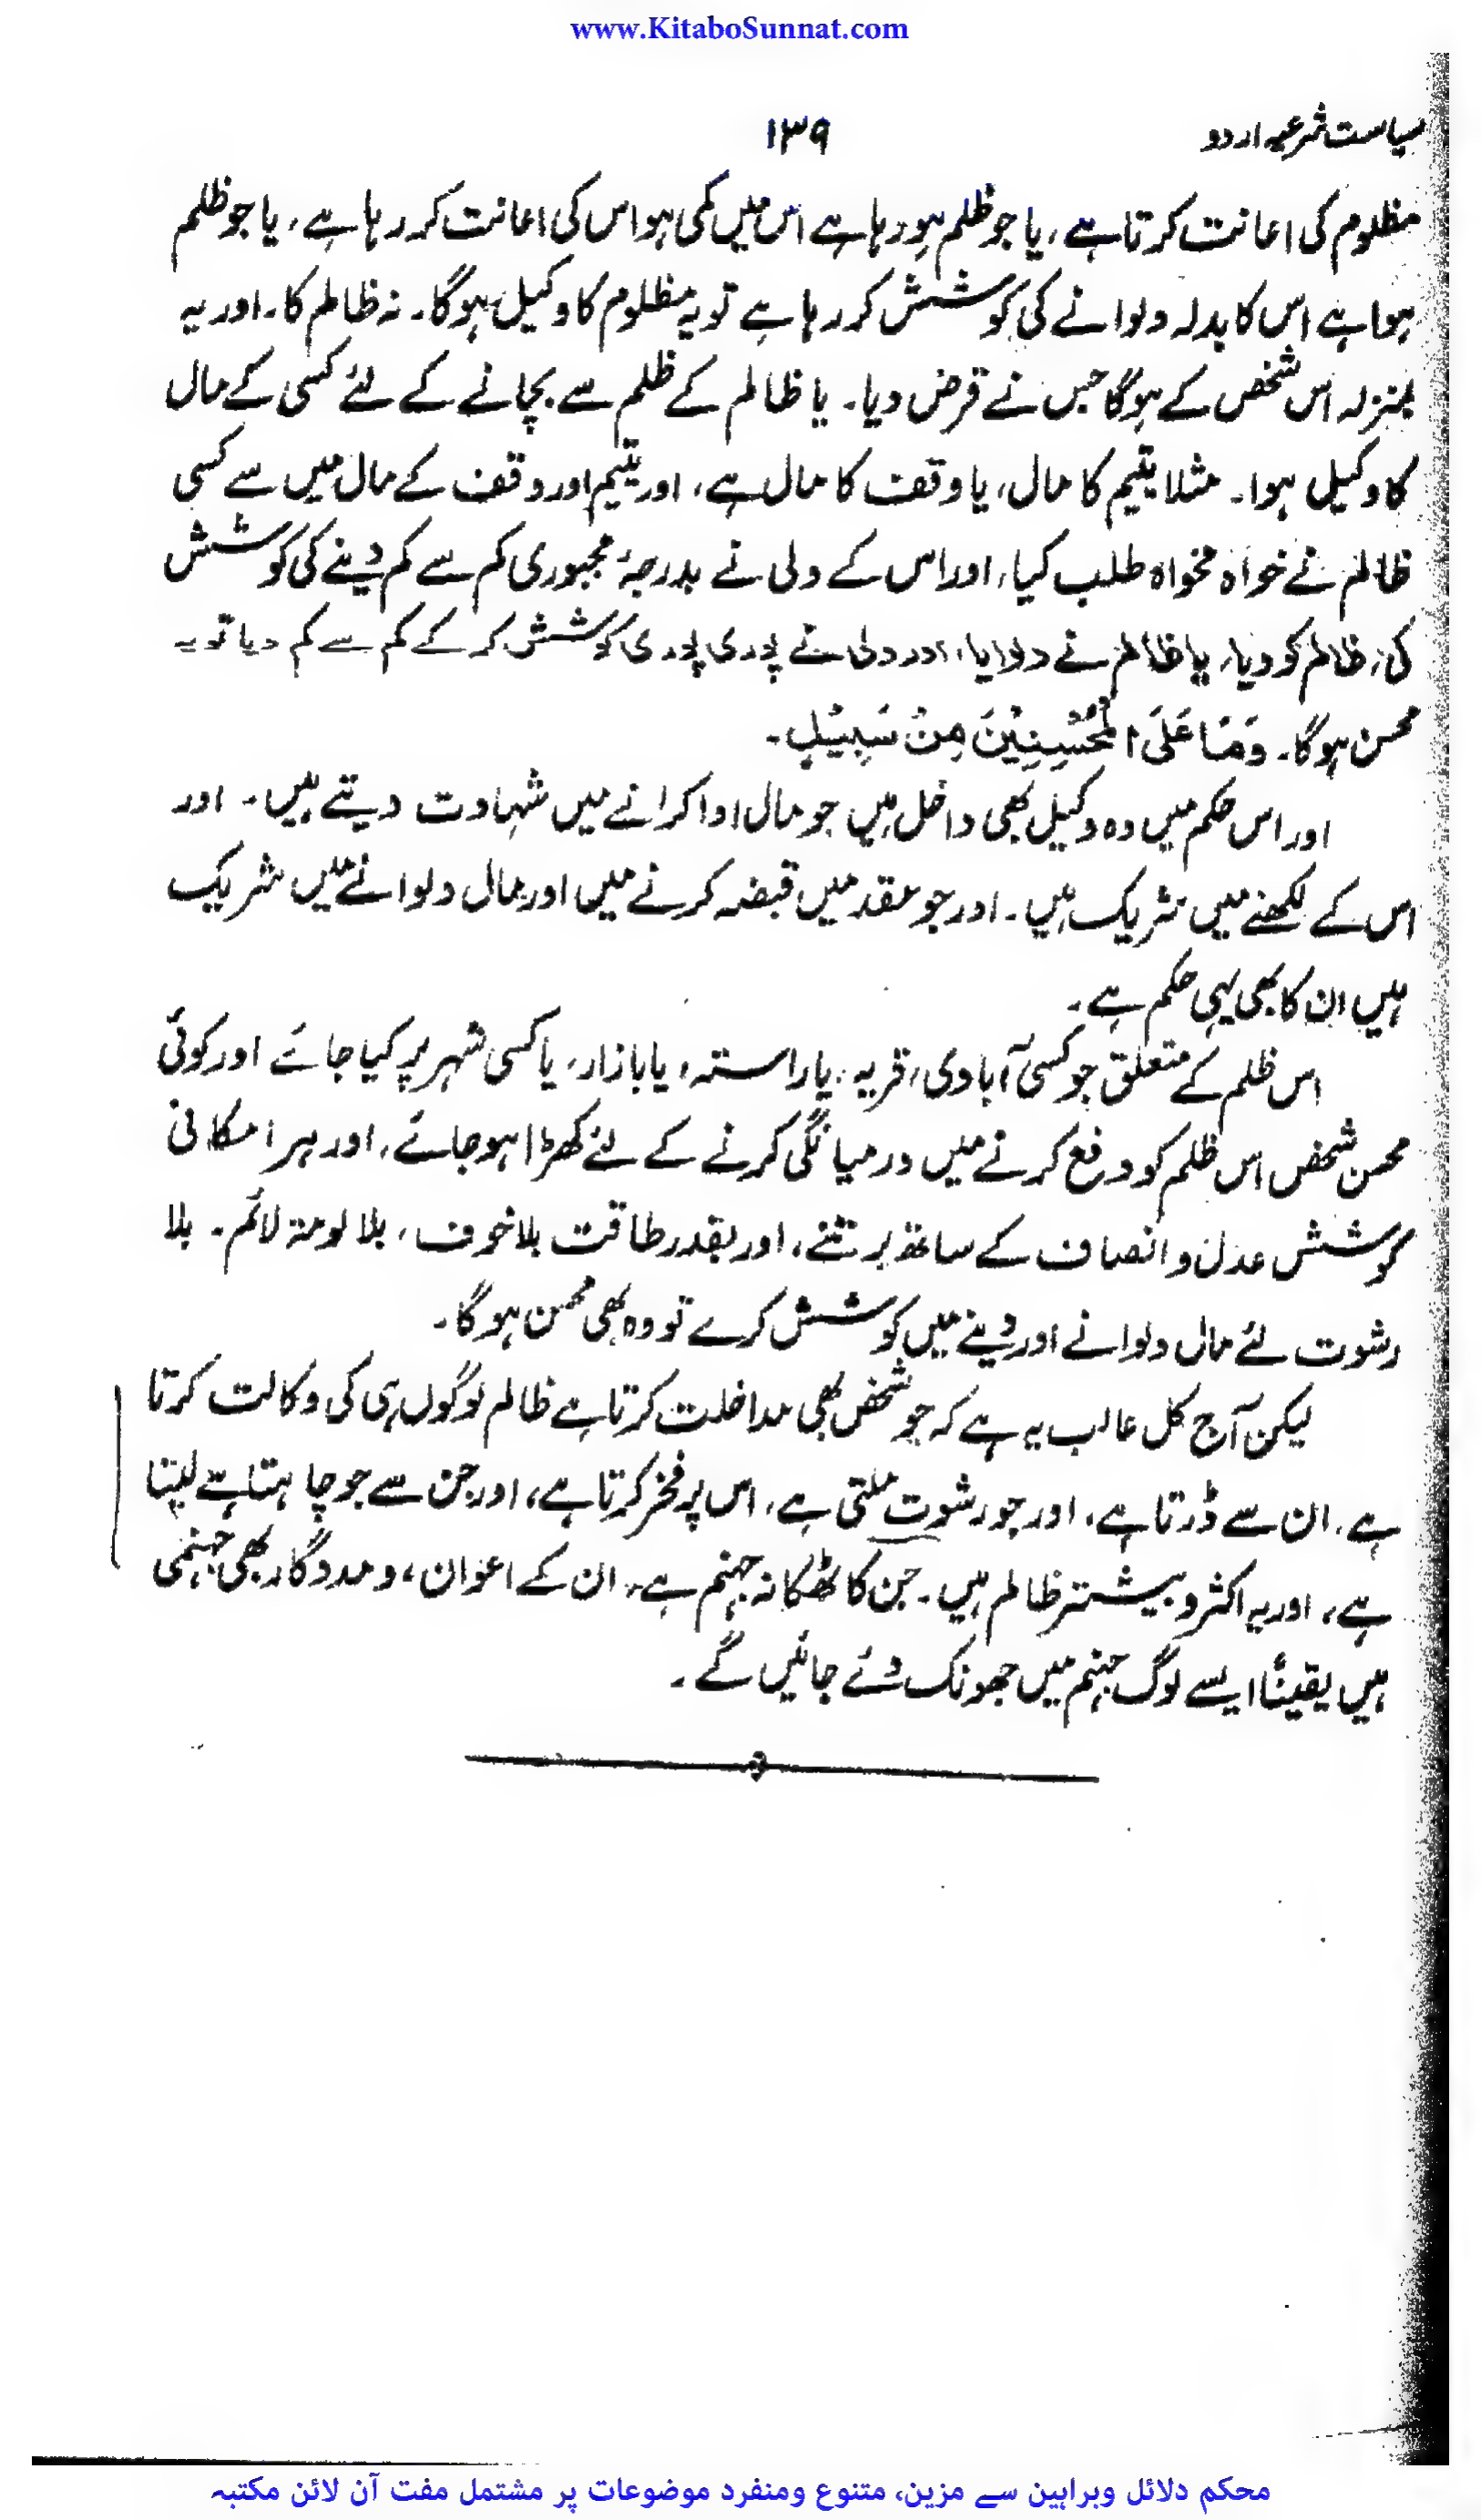 www.KitaboSunnat.com
سیاست شرعیہ اردو
۱۳۹
مظلوم کی اعانت کرتا ہے، یا جو ظلم ہو رہا ہے اس میں کمی ہو اس کی اعانت کر رہا ہے، یا جو ظلم
ہوا ہے اس کا بدلہ دلوانے کی کوشش کر رہا ہے تو یہ مظلوم کا وکیل ہوگا۔ نہ ظالم کا۔ اور یہ
بمنزلہ اس شخص کے ہوگا جس نے قرض دیا۔ یا ظالم کے ظلم سے بچانے کے لئے کسی کے مال
کا وکیل ہوا۔ مثلا یتیم کا مال، یا وقف کا مال ہے، اور یتیم اور وقف کے مال میں سے کسی
ظالم نے خواہ مخواہ طلب کیا، اور اس کے ولی نے بدرجۂ مجبوری کم سے کم دینے کی کوشش
کی، ظالم کو دیا، یا ظالم نے دلوایا، اور ولی نے پوری پوری کوشش کر کے کم سے کم دیا تو یہ
محسن ہوگا۔ وَمَا عَلَى الْمُحْسِنِيْنَ مِنْ سَبِيْلٍ۔
اور اس حکم میں وہ وکیل بھی داخل ہیں جو مال ادا کرانے میں شہادت دیتے ہیں۔ اور
اس کے لکھنے میں شریک ہیں۔ اور جو عقد میں قبضہ کرنے میں اور مال دلوانے میں شریک
ہیں ان کا بھی یہی حکم ہے۔
اس ظلم کے متعلق جو کسی آبادی، قریہ، یا راستہ، یا بازار، یا کسی شہر پر کیا جائے اور کوئی
محسن شخص اس ظلم کو دفع کرنے میں درمیانگی کرنے کے لئے کھڑا ہو جائے، اور ہر امکانی
کوشش عدل و انصاف کے ساتھ برتتے، اور بقدر طاقت بلا خوف، بلا لومۃ لائم۔ بلا
رشوت لئے مال دلوانے اور دینے میں کوشش کرے تو وہ بھی محسن ہوگا۔
لیکن آج کل غالب یہ ہے کہ جو شخص بھی مداخلت کرتا ہے ظالم لوگوں ہی کی وکالت کرتا
ہے، ان سے ڈرتا ہے، اور جو رشوت ملتی ہے، اس پر فخر کرتا ہے، اور جن سے جو چاہتا ہے لیتا
ہے، اور یہ اکثر و بیشتر ظالم ہیں۔ جن کا ٹھکانہ جہنم ہے، ان کے اعوان، و مددگار بھی جہنمی
ہیں یقیناً ایسے لوگ جہنم میں جھونک دئے جائیں گے۔
محکم دلائل وبراہین سے مزین، متنوع ومنفرد موضوعات پر مشتمل مفت آن لائن مکتبہ